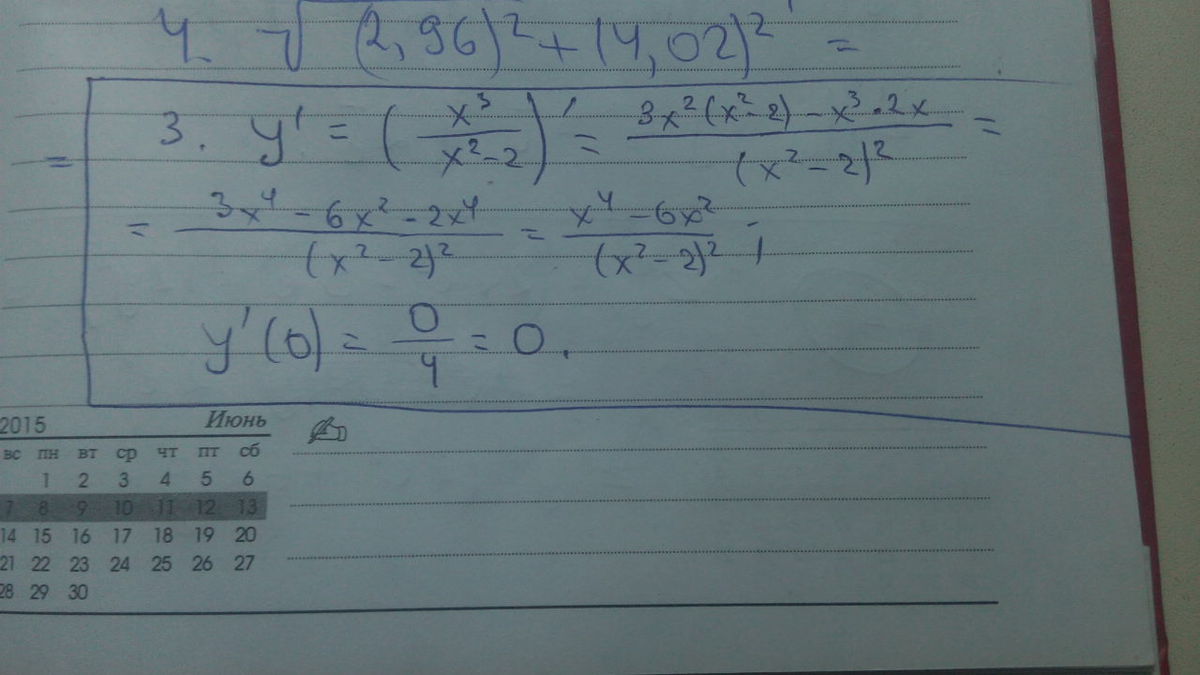 4. √(2,96)² + (4,02)² =
3. y' = (x³/(x²-2))' = (3x²(x²-2) - x³·2x)/(x²-2)² =
=
= (3x⁴ - 6x² - 2x⁴)/(x²-2)² = (x⁴ - 6x²)/(x²-2)² ;
y'(0) = 0/4 = 0.
2015 Июнь
вс пн вт ср чт пт сб
1 2 3 4 5 6
7 8 9 10 11 12 13
14 15 16 17 18 19 20
21 22 23 24 25 26 27
28 29 30